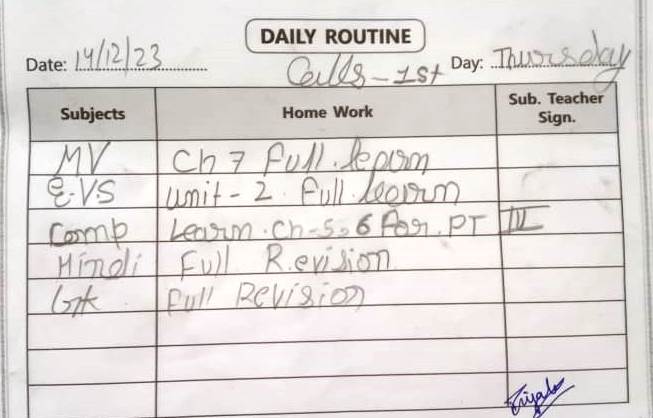 DAILY ROUTINE
Date: 14/12/23 Day: Thursday
Calls-1st
Subjects Home Work Sub. Teacher Sign.
MV Ch 7 Full.learn
E.VS unit-2. Full.learn
Comp Learn.Ch-5,6 For.PT III
Hindi Full Revision
Gk Full Revision